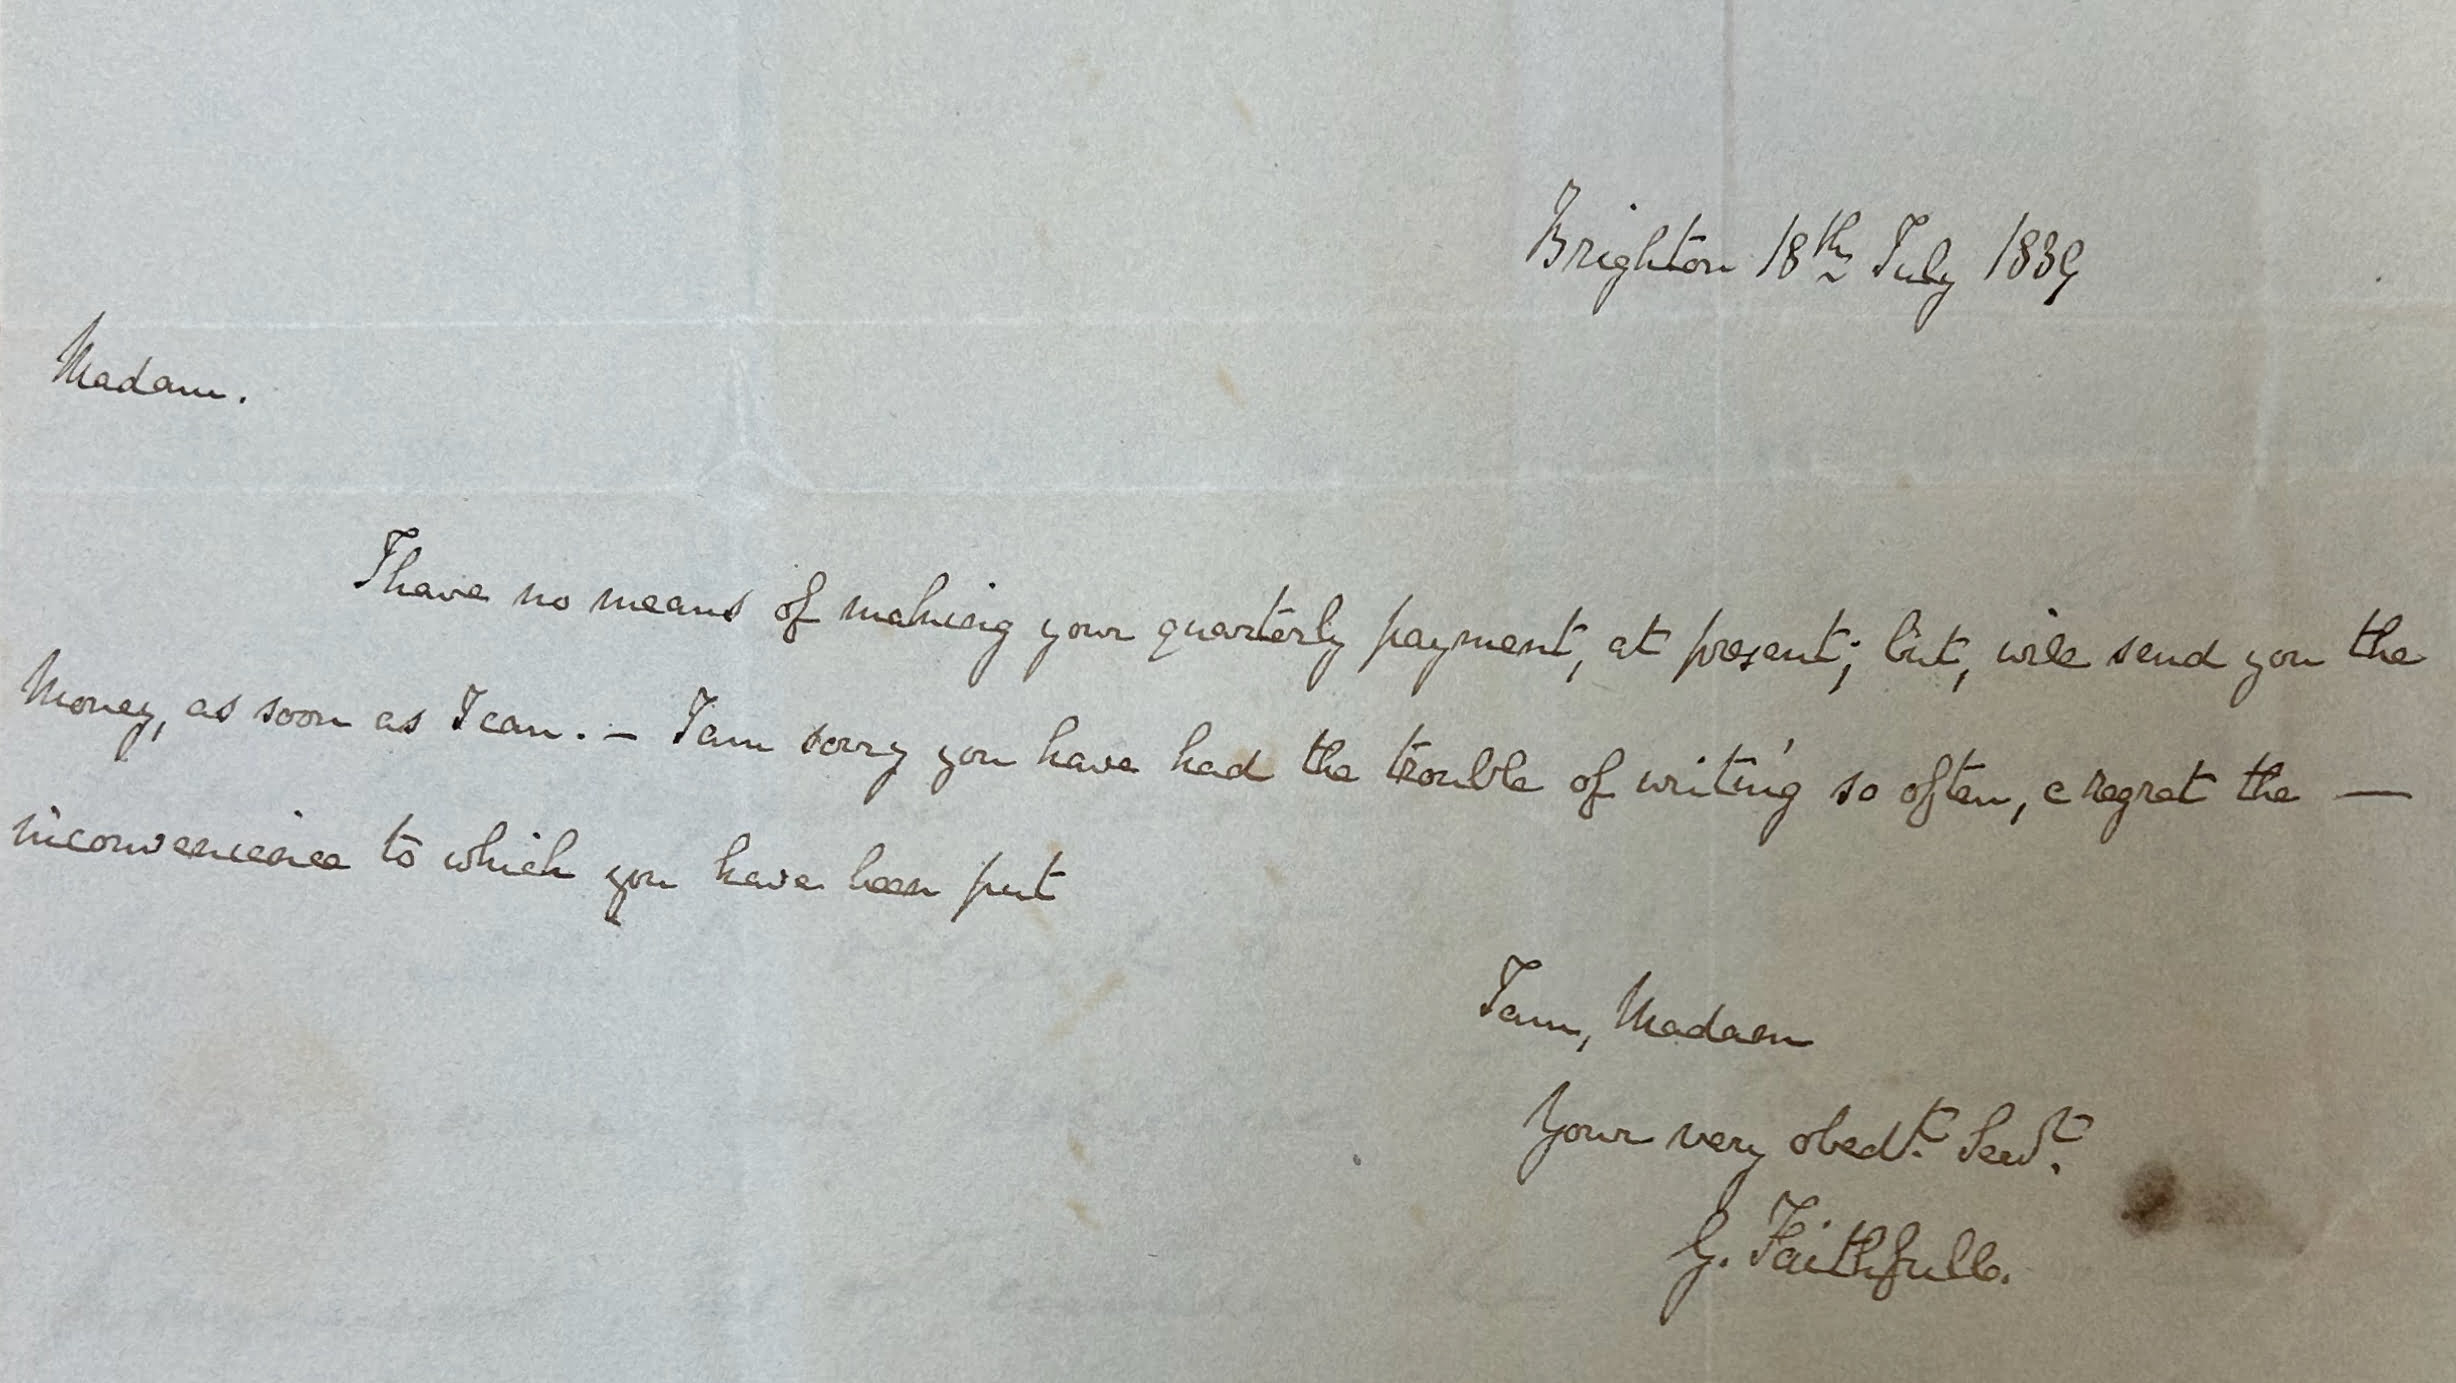 Brighton 18th July 1839
Madam.
I have no means of making your quarterly payment, at present; but, will send you the
Money, as soon as I can. — I am sorry you have had the trouble of writing so often, & regret the —
inconvenience to which you have been put
I am, Madam
Your very obedt. Servt.
G. Faithfull.